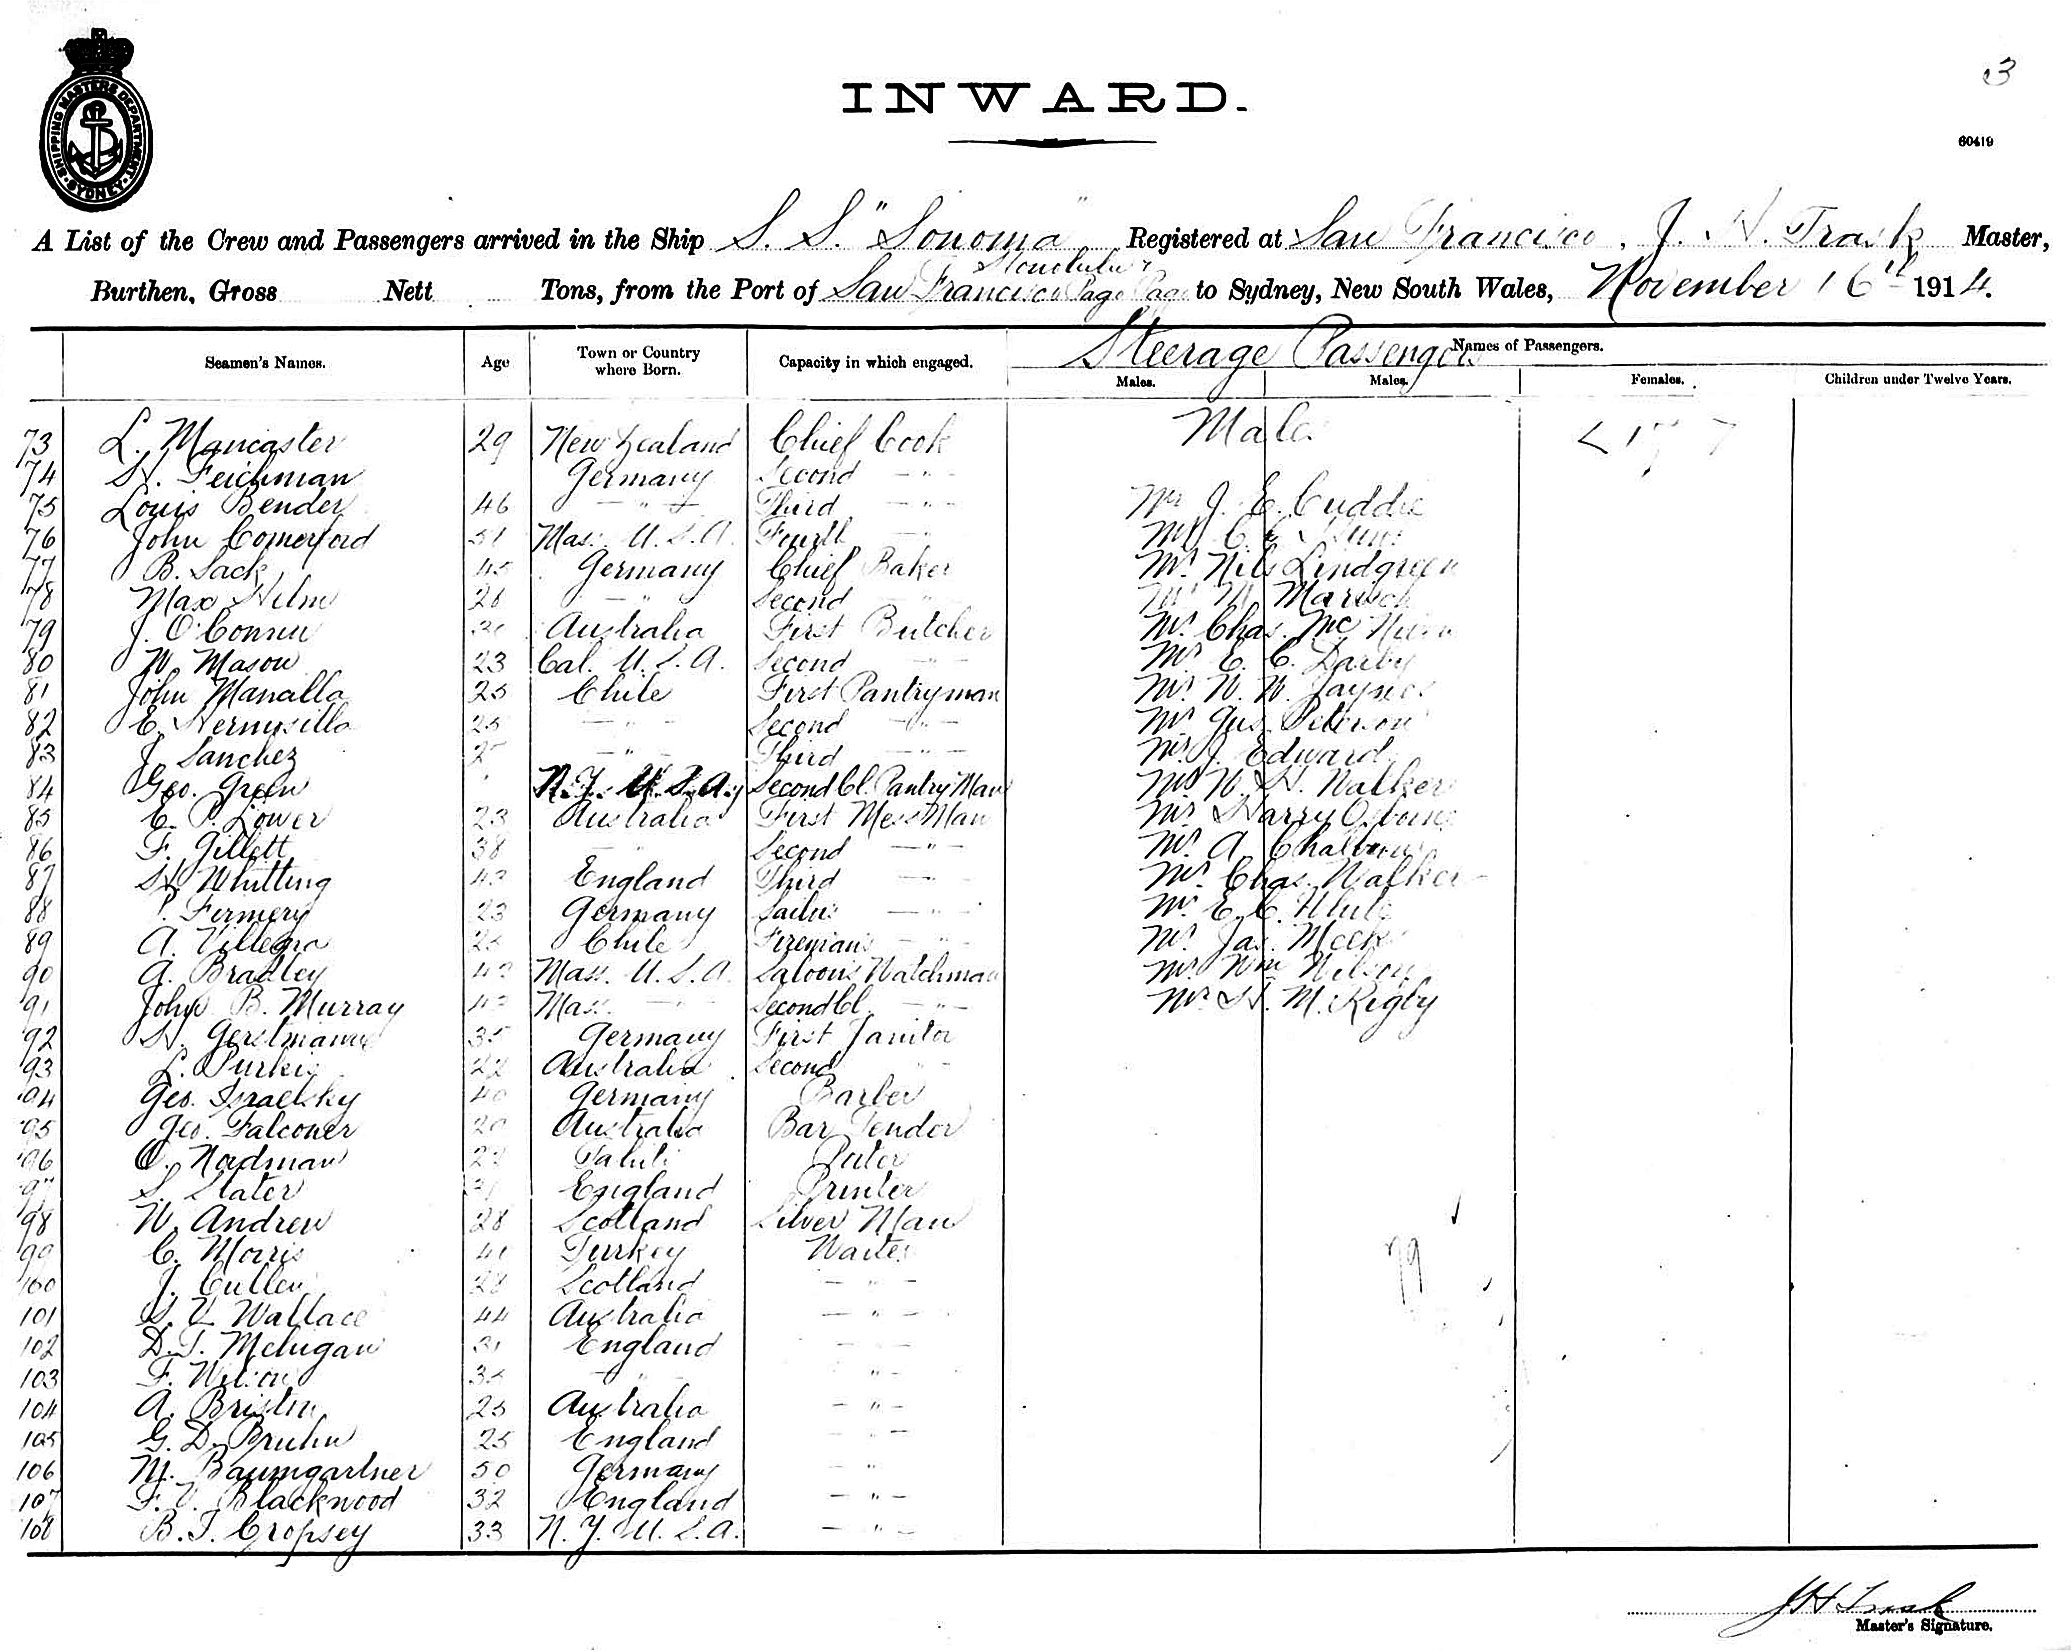 3
INWARD.
60419
SHIPPING MASTERS DEPARTMENT SYDNEY
A List of the Crew and Passengers arrived in the Ship S. S. "Sonoma" Registered at San Francisco, J. H. Trask Master,
Honolulu
Burthen, Gross Nett Tons, from the Port of San Francisco Pago Pago to Sydney, New South Wales, November 16th 1914.
Steerage Passengers
Seamen's Names. Age Town or Country where Born. Capacity in which engaged. Names of Passengers.
Males. Males. Females. Children under Twelve Years.
73 L. Mancaster 29 New Zealand Chief Cook Male
74 H. Feichman Germany Second — " —
75 Louis Bender 46 — " — Third — " — Mr J. E. Cuddie
76 John Comerford 51 Mass. U.S.A. Fourth Mr C. E.
77 B. Sack 45 Germany Chief Baker Mr. Nils Lindgreen
78 Max Helm 26 — " — Second — " — Mr M.
79 J. O'Connor Australia First Butcher Mr. Chas. Mc
80 W. Mason 23 Cal. U.S.A. Second — " — Mr E. C. Darby
81 John Manalla 25 Chile First Pantryman Mr. W. W. Jaynes
82 E. Hermosilla 25 — " — Second — " — Mr Gus Peterson
83 J. Sanchez — " — Third — " — Mr. J. Edward
84 Geo. Green N.Y. U.S.A. Second Cl. Pantry Man Mr W. H. Walker
85 E. P. Lower 23 Australia First Mess Man Mr Harry Osborne
86 F. Gillett 38 — " — Second — " — Mr. A.
87 H. Whitting 43 England Third — " — Mr Chas. Walker
88 Firmery 23 Germany Sailors — " — Mr. E. C. White
89 A. Villegra Chile Firemans — " — Mr. Jas. Meek
90 A. Bradley Mass. U.S.A. Saloons Watchman Mr Wm Wilson
91 John B. Murray 43 Mass. — " — Second Cl. — " — Mr H. M. Rigby
92 H. Gerstmann 35 Germany First Janitor
93 L. Purkis 22 Australia Second
94 Geo. Israelsky 40 Germany Barber
95 Geo. Falconer Australia Bar Tender
96 O. Nadman Tahiti Porter
97 S. Slater England Printer
98 W. Andrew 28 Scotland Silver Man
99 C. Morris 41 Turkey Waiter
100 J. Cullen 28 Scotland — " —
101 S. V. Wallace 44 Australia — " —
102 D. T. 31 England
103 F. Wilson — " — — " —
104 A. Bristin 25 Australia — " —
105 G. D. Bruhn 25 England — " —
106 M. Baumgartner 50 Germany "
107 F. V. Blackwood 32 England — " —
108 B. T. Cropsey 33 N.Y. U.S.A. — " —
J H Trask
Master's Signature.